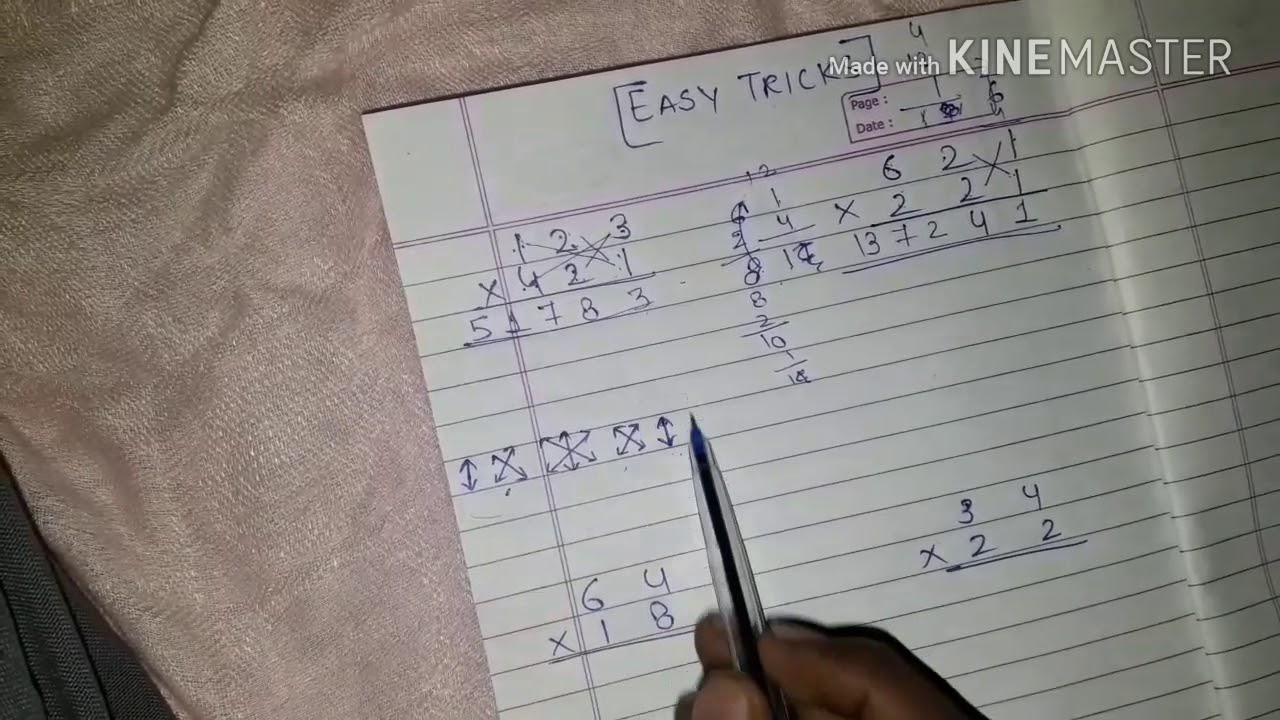 Made with KINEMASTER
[EASY TRICK]
Page :
Date :
1 2 3
× 4 2 1
5 1 7 8 3
1
4
8
8
2
10
1
6 2 1
× 2 2 1
13 7 2 4 1
6 4
× 1 8
3 4
× 2 2